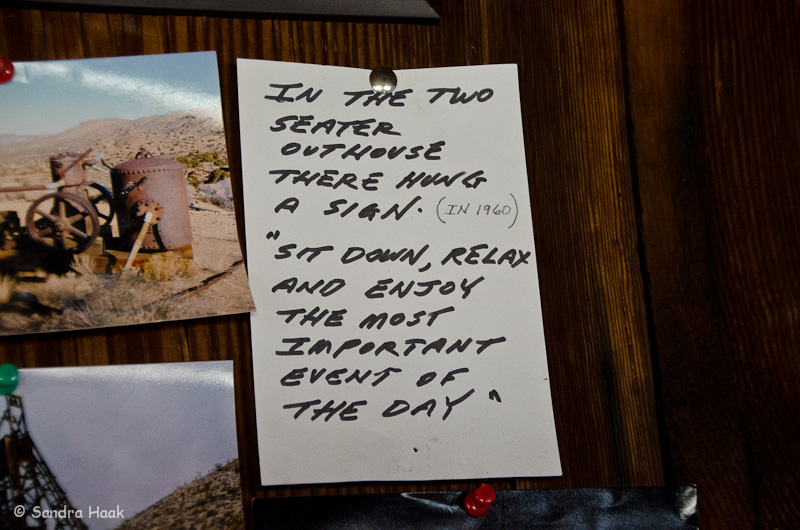 IN THE TWO
SEATER
OUTHOUSE
THERE HUNG
A SIGN. (IN 1960)
"SIT DOWN, RELAX
AND ENJOY
THE MOST
IMPORTANT
EVENT OF
THE DAY"
© Sandra Haak